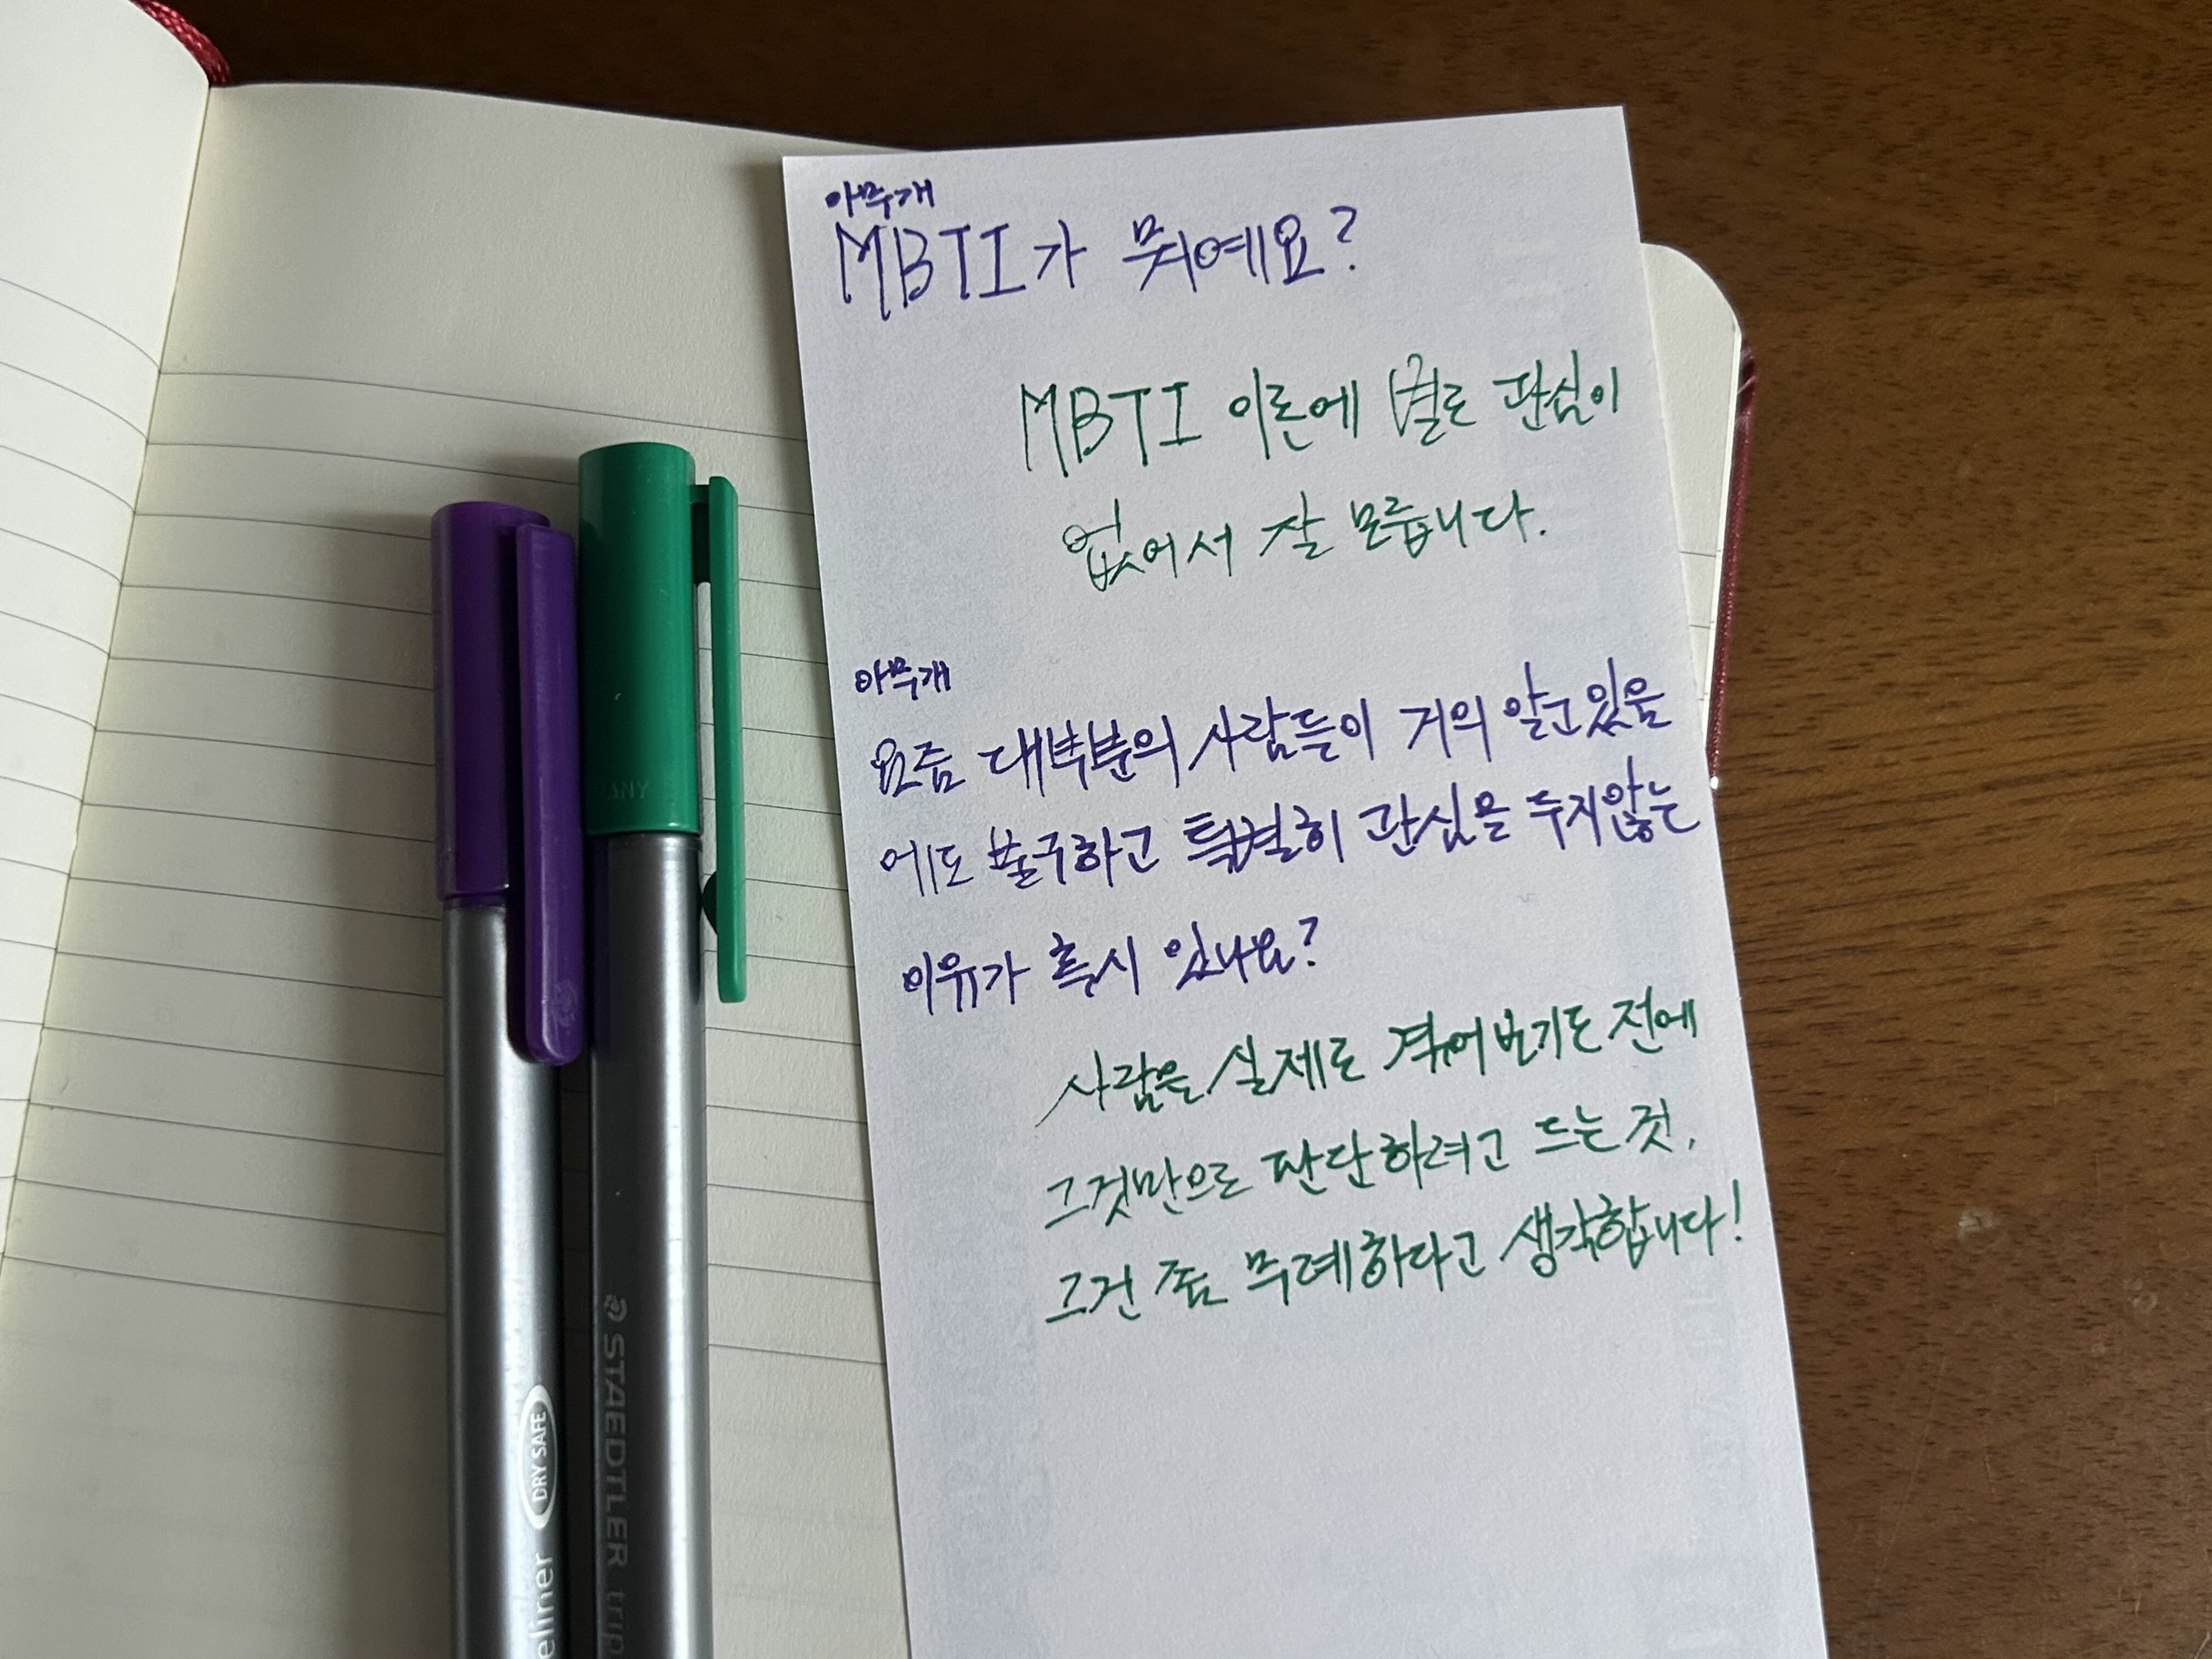 아무개
MBTI가 뭐예요?
MBTI 이론에 별로 관심이
없어서 잘 모릅니다.
아무개
요즘 대부분의 사람들이 거의 알고있음
에도 불구하고 특별히 관심을 두지않는
이유가 혹시 있나요?
사람을 실제로 겪어보기도 전에
그것만으로 판단하려고 드는 것,
그건 좀 무례하다고 생각합니다!
DRY SAFE
eliner
STAEDTLER trip